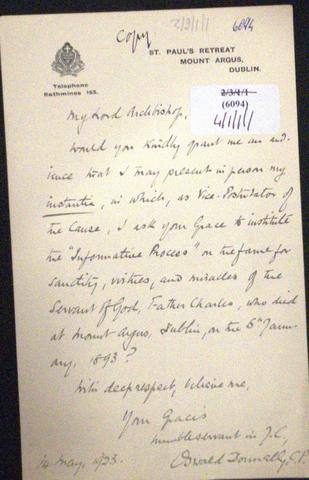 Copy
2/3/1/1
6094
ST. PAUL'S RETREAT
MOUNT ARGUS,
DUBLIN.
Telephone
Rathmines 165.
2/3/1/1
(6094)
4/1/1/1
My Lord Archbishop,
Would you kindly grant me an aud-
ience that I may present in person my
instantia, in which, as Vice-Postulator of
the Cause, I ask your Grace to institute
the "Informative Process" on the fame for
sanctity, virtues, and miracles of the
Servant of God, Father Charles, who died
at Mount Argus, Dublin, on the 5th Janu-
ary, 1893?
With deep respect, believe me,
Your Grace's
humble servant in J.C,
14 May, 1923.
Oswald Donnelly, C.P.